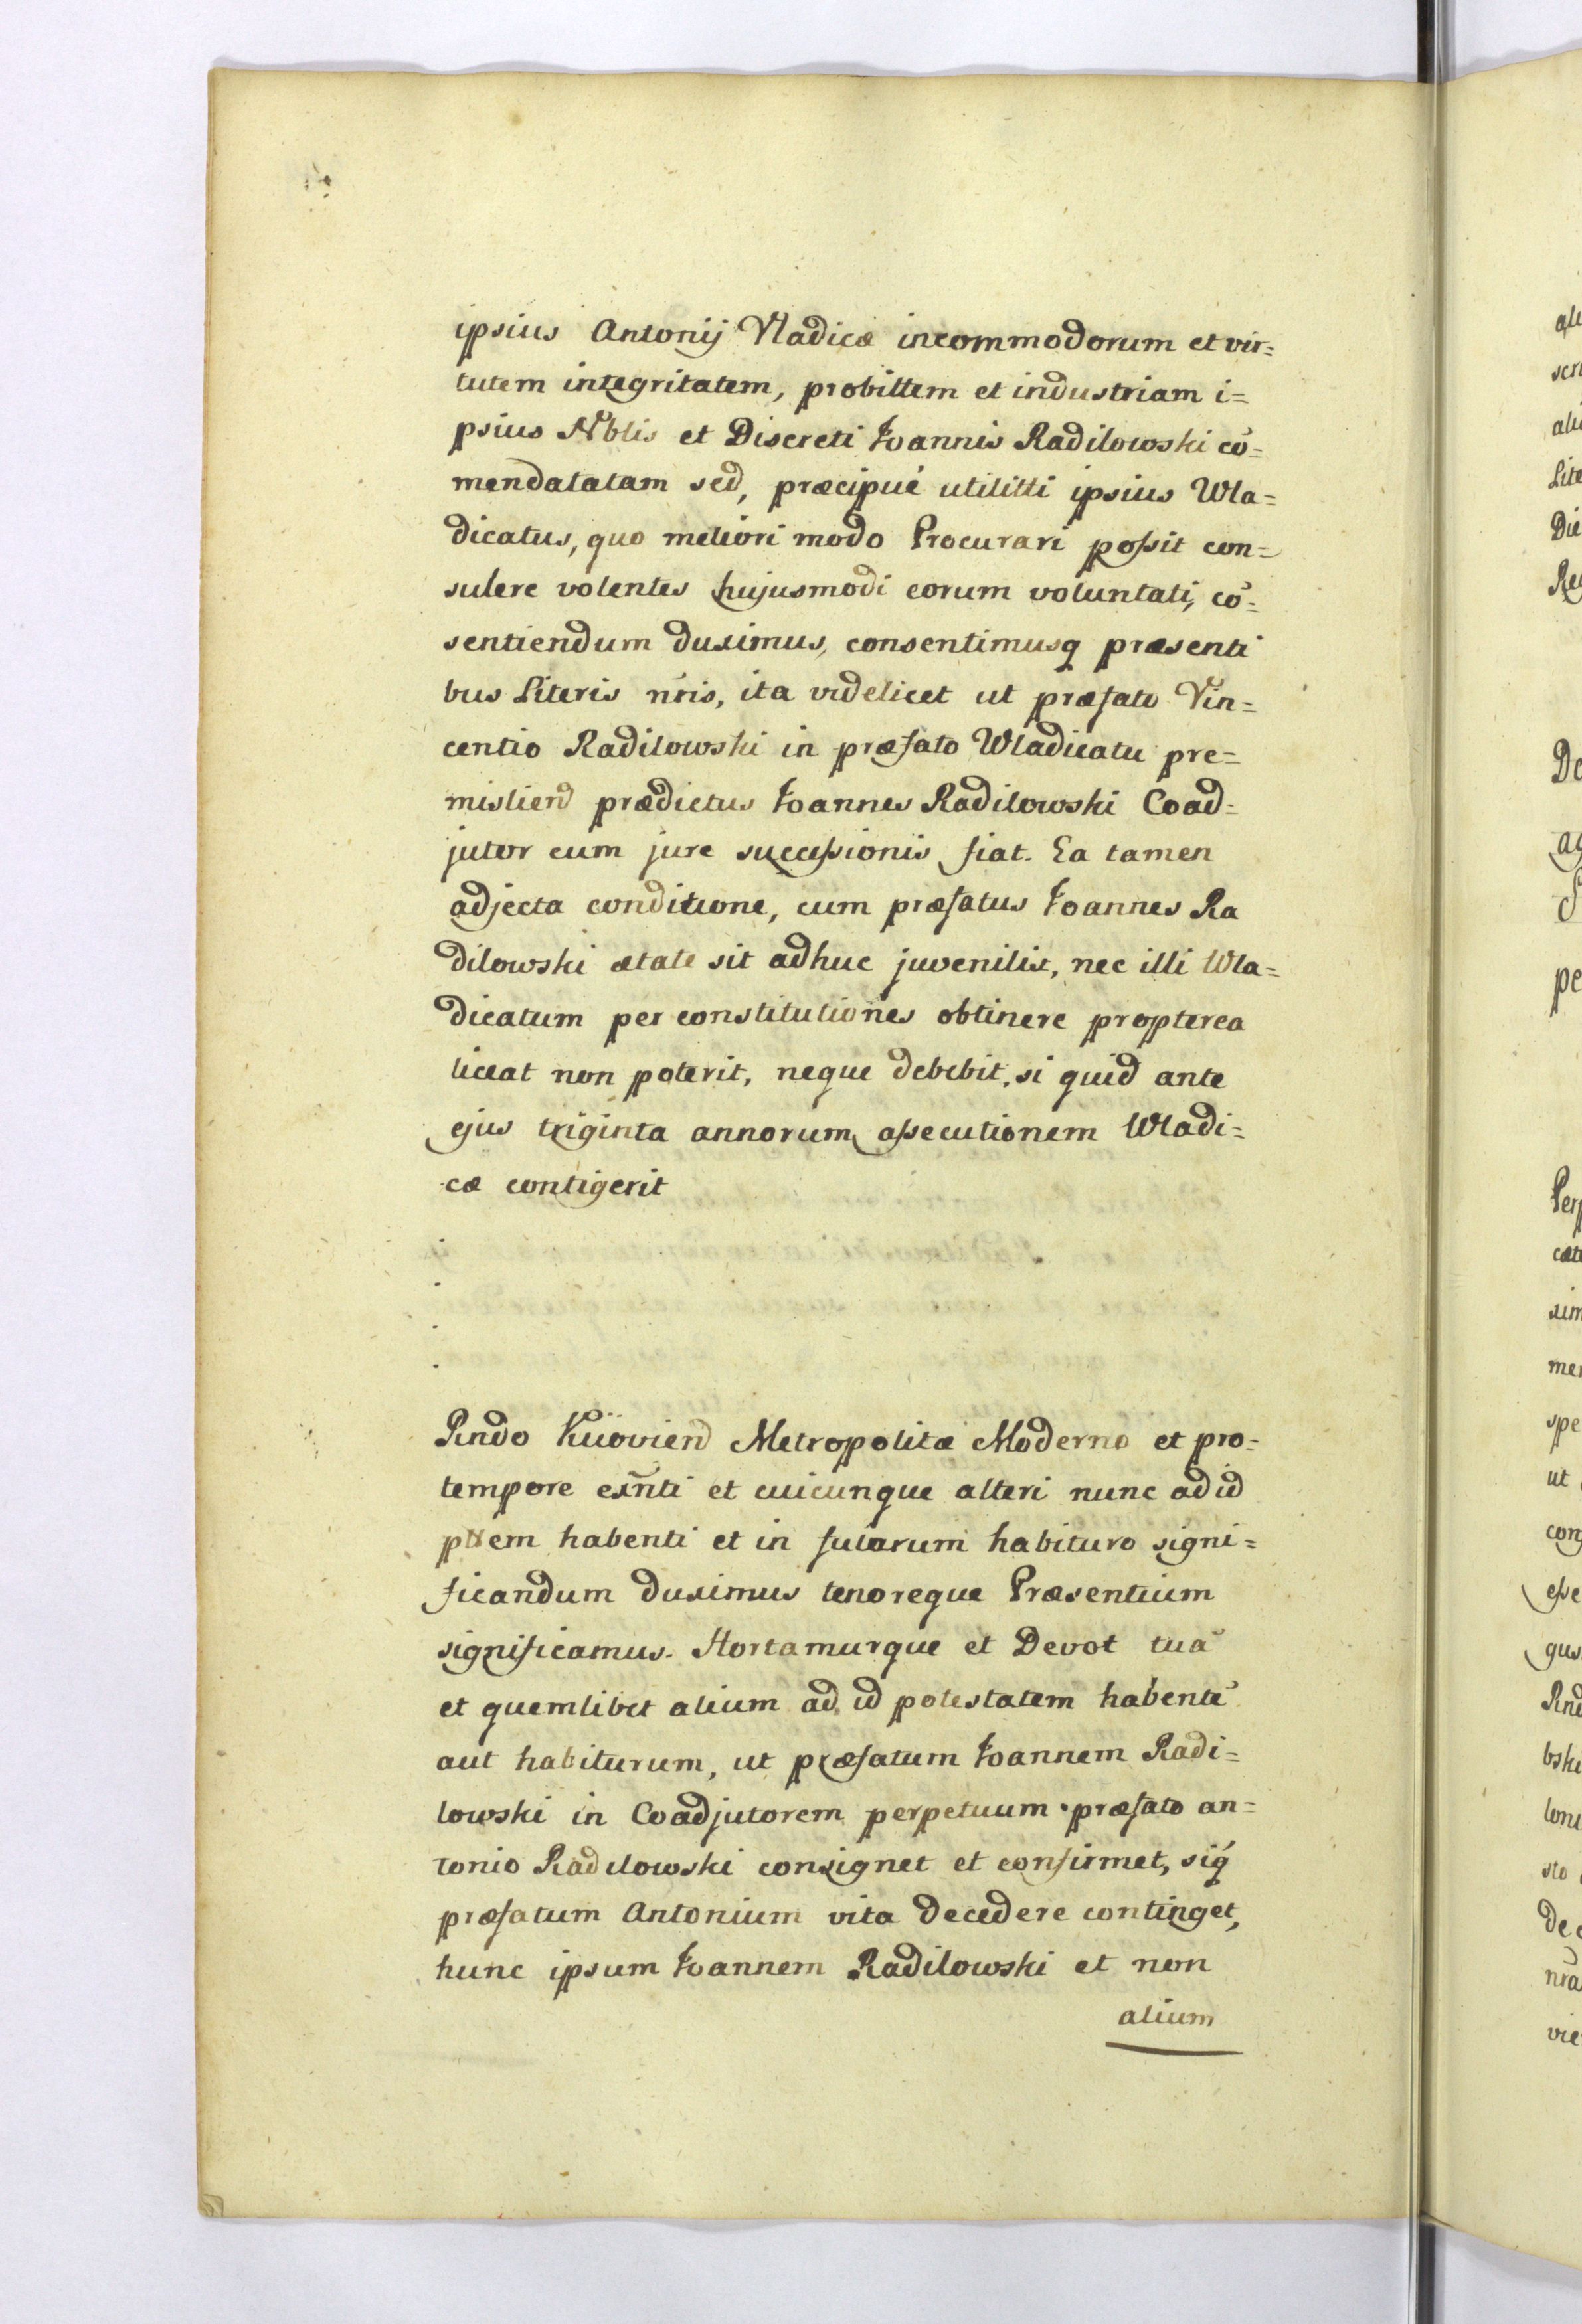 ipsius Antonij Vladicæ incommodorum et vir=
tutem integritatem, probittem et industriam i=
psius Nblis et Discreti Joannis Radilowski cō=
mendatatam sed, præcipué utilitti ipsius Wla=
dicatus, quo meliori modo Procurari possit con=
sulere volentes hujusmodi eorum voluntati, cō=
sentiendum duximus, consentimusq præsenti
bus Literis nris, ita videlicet ut præfato Vin=
centio Radilowski in præfato Wladicatu pre=
mislien prædictus Joannes Radilowski Coad=
jutor cum jure successionis fiat. Ea tamen
adjecta conditione, cum præfatus Joannes Ra
dilowski ætate sit adhuc juvenilis, nec illi Wla=
dicatum per constitutiones obtinere propterea
liceat non poterit, neque debebit, si quid ante
ejus triginta annorum assecutionem Wladi=
cæ contigerit
.
.
.
.
Rndo Kiiovien Metropolitæ Moderno et pro=
tempore exñti et cuicunque alteri nunc ad id
pttem habenti et in futurum habituro signi=
ficandum duximus tenoreque Præsentium
significamus. Hortamurque et Devot tuā
et quemlibet alium ad id potestatem habentē
aut habiturum, ut præfatum Joannem Radi=
lowski in Coadjutorem perpetuum præfato an=
tonio Radilowski consignet et confirmet, siq
præfatum Antonium vita decedere continget,
hunc ipsum Joannem Radilowski et non
alium